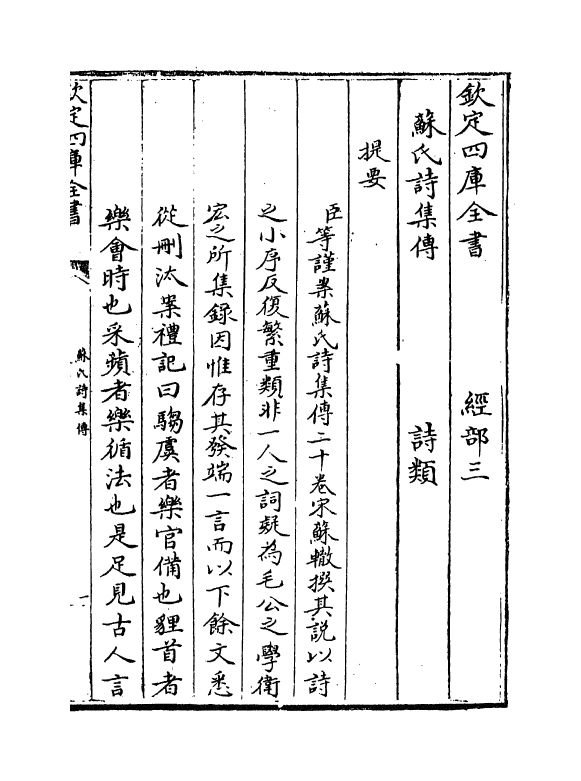 欽定四庫全書　經部三
蘇氏詩集傳　詩類
提要
臣等謹案蘇氏詩集傳二十卷宋蘇轍撰其說以詩
之小序反復繁重類非一人之詞疑為毛公之學衛
宏之所集錄因惟存其發端一言而以下餘文悉
從刪汰案禮記曰騶虞者樂官備也貍首者
樂會時也采蘋者樂循法也是足見古人言
欽定四庫全書　蘇氏詩集傳　一